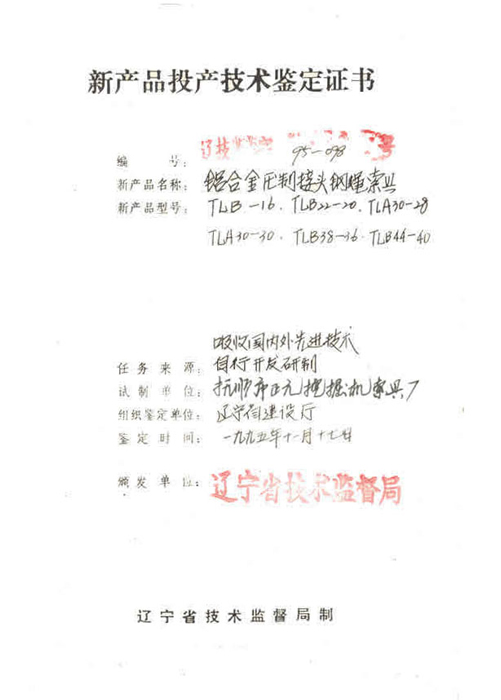 新产品投产技术鉴定证书
编 号: 95-098
新产品名称: 铝合金压制接头钢绳索具
新产品型号: TLB-16、TLB22-20、TLA30-28
TLA30-30、TLB38-36、TLB44-40
吸收国内外先进技术
任务来源: 自行开发研制
试制单位: 抚顺市正元挖掘机索具厂
组织鉴定单位: 辽宁省建设厅
鉴定时间: 一九九五年十一月十七日
颁发单位: 辽宁省技术监督局
辽宁省技术监督局制